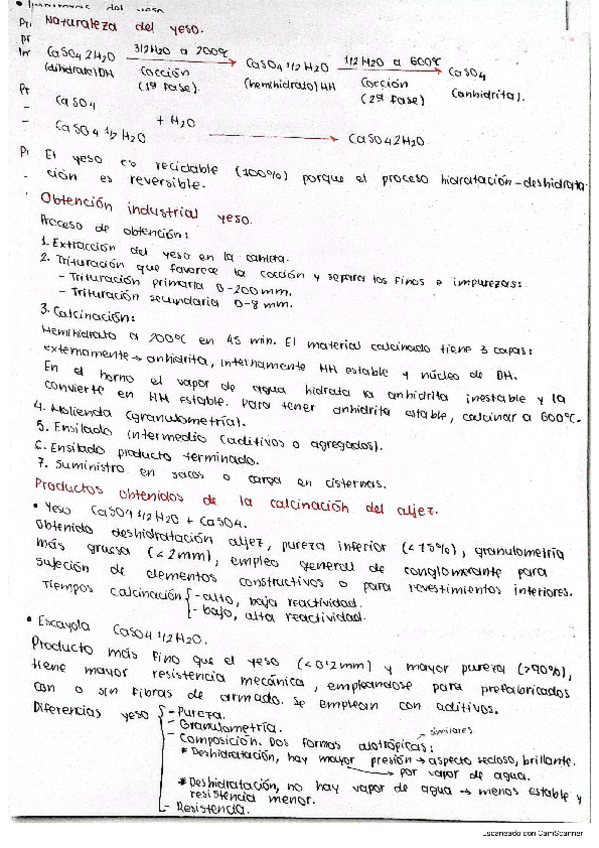 Naturaleza del yeso.
CaSO4 2H2O 3/2H2O a 200ºC CaSO4 1/2 H2O 1/2 H2O a 600ºC CaSO4
(dihidrato) DH cocción (hemihidrato) HH cocción (anhidrita).
(1ª fase). (2ª fase)
CaSO4
+ H2O
CaSO4 1/2 H2O CaSO4 2H2O
El yeso es reciclable (100%) porque el proceso hidratación-deshidrata
ción es reversible.
Obtención industrial yeso.
Proceso de obtención:
1. Extracción del yeso en la cantera.
2. Trituración que favorece la cocción y separa los finos e impurezas:
- Trituración primaria 0-200mm.
- Trituración secundaria 0-8 mm.
3. Calcinación:
Hemihidrato a 200ºC en 45 min. El material calcinado tiene 3 capas:
externamente → anhidrita, internamente HH estable y núcleo de DH.
En el horno el vapor de agua hidrata la anhidrita inestable y la
convierte en HH estable. Para tener anhidrita estable, calcinar a 600ºC.
4. Molienda (granulometría).
5. Ensilado intermedio (aditivos o agregados).
6. Ensilado producto terminado.
7. Suministro en sacos o carga en cisternas.
Productos obtenidos de la calcinación del aljez.
• Yeso CaSO4 1/2 H2O + CaSO4.
Obtenido deshidratación aljez, pureza inferior (<75%), granulometría
más gruesa (<2mm), empleo general de conglomerante para
sujeción de elementos constructivos o para revestimientos interiores.
Tiempos calcinación { - alto, baja reactividad.
- bajo, alta reactividad.
• Escayola CaSO4 1/2 H2O.
Producto más fino que el yeso (<0'2mm) y mayor pureza (>90%),
tiene mayor resistencia mecánica, empleándose para prefabricados
con o sin fibras de armado. Se emplean con aditivos.
Diferencias yeso { - Pureza.
- Granulometría.
similares
- Composición. Dos formas alotrópicas:
* Deshidratación, hay mayor presión → aspecto sedoso, brillante.
por vapor de agua.
* Deshidratación, no hay vapor de agua → menos estable y
resistencia menor.
- Resistencia.
Escaneado con CamScanner